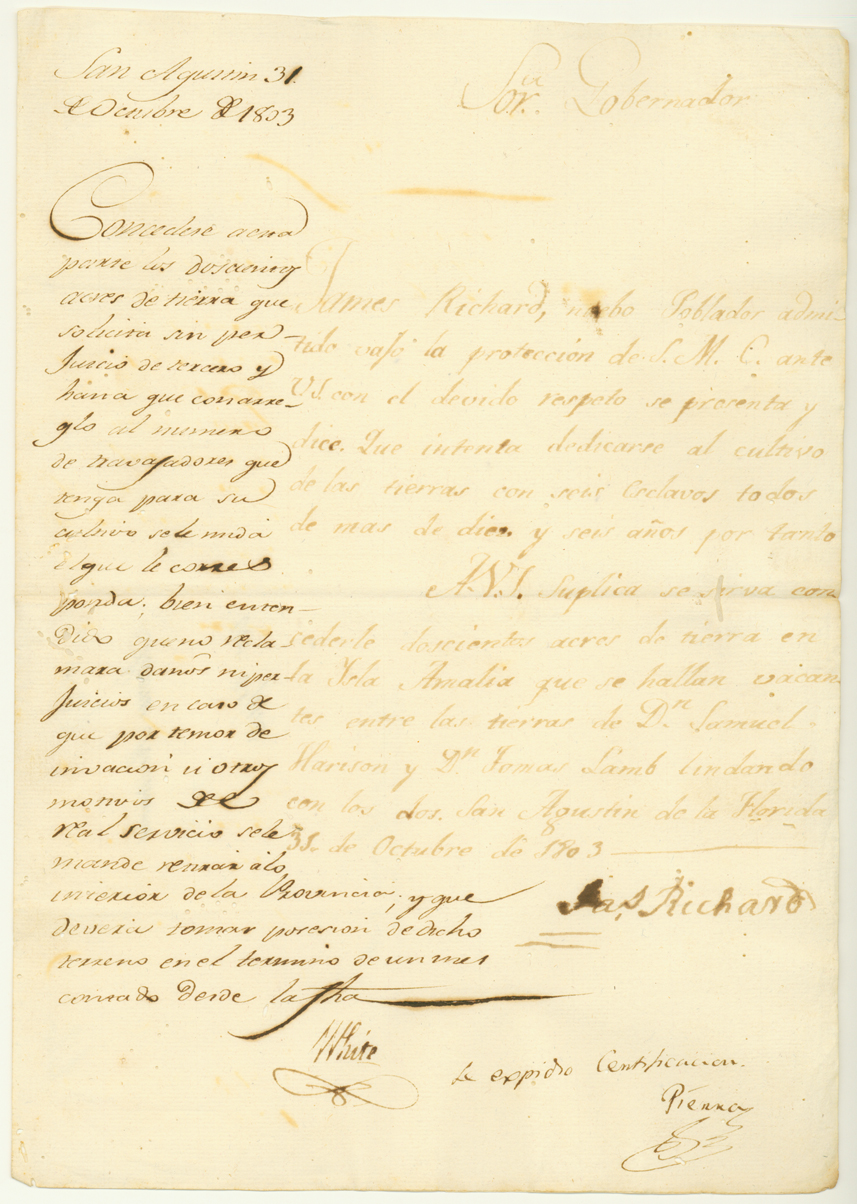 San Agustin 31
de Octubre de 1803
Concedese a esta
parte los doscientos
acres de tierra que
solicita sin per-
juicio de tercero y
hasta que con arre-
glo al numero
de travajadores que
tenga para su
cultivo se le mida
el que le corres
ponda; bien enten-
dido que no recla
mara daños ni per-
juicios en caso de
que por temor de
invacion ù otros
motivos del
real servicio se le
mande retirar à lo
interior de la Provincia; y que
devera tomar posecion de dicho
terreno en el termino de un mes
contado desde la fha
White
Sor. Gobernador
James Richard, nuebo Poblador admi-
tido vajo la protección de S. M. C. ante
V.S. con el devido respeto se presenta y
dice. Que intenta dedicarse al cultivo
de las tierras con seis Esclavos todos
de mas de diez y seis años por tanto
A. V.S. Suplica se sirva con
cederle doscientos acres de tierra en
la Isla Amalia que se hallan vacan
tes entre las tierras de Dn Samuel
Harison y Dn Tomas Lamb lindando
con los dos. San Agustin de la Florida
31. de Octubre de 1803
Jas Richard
Se expidio Certificacion.
Pierra